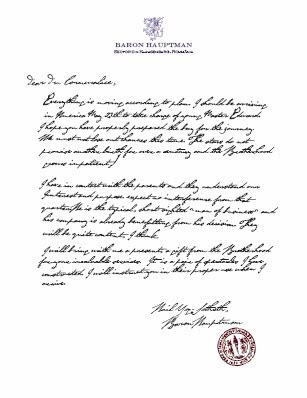 BARON HAUPTMAN
Dear Dr. Cornwallace,
Everything is moving according to plan. I should be arriving
in America May 23th to take charge of young Master Edward.
I hope you have properly prepared the boy for the journey.
We must not lose our chances this time. The stars do not
promise another birth for over a century and the Brotherhood
grows impatient.
I have in contact with the parents and they understand our
interest and purpose expect no interference from that
quarter. He is the typical, short-sighted "man of business" and
his company is already benefitting from his decision. They
will be quite content, I think.
I will bring with me a present, a gift from the Brotherhood
for your invaluable services. It is a pair of spectacles I have
constructed. I will instruct you in their proper use when I
arrive.
Hail
Baron Hauptman